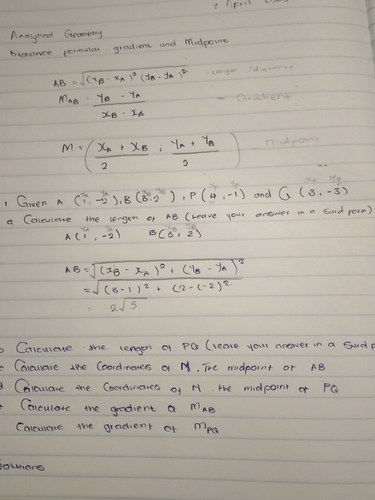 7 April
Analytical Geometry
Distance formular, gradient and Midpoint
AB = √(xB - xA)² (yB - yA)² - Lengen / distance
MAB = yB - yA / xB - xA - Gradient
M = (xA + xB / 2 ; yA + yB / 2) - Midpoint
1 Given A (1, -2), B (3, 2), P (4, -1) and Q (3, -3)
a Calculate the length of AB (Leave your answer in a surd form)
A (1, -2) B (3, 2)
AB = √(xB - xA)² + (yB - yA)²
= √(3-1)² + (2-(-2)²
= 2√5
Calculate the length of PQ (Leave your answer in a surd
Calculate the Coordinates of M, The midpoint of AB
d Calculate the Coordinates of N, the midpoint of PQ
Calculate the gradient of MAB
Calculate the gradient of MPQ
Solutions